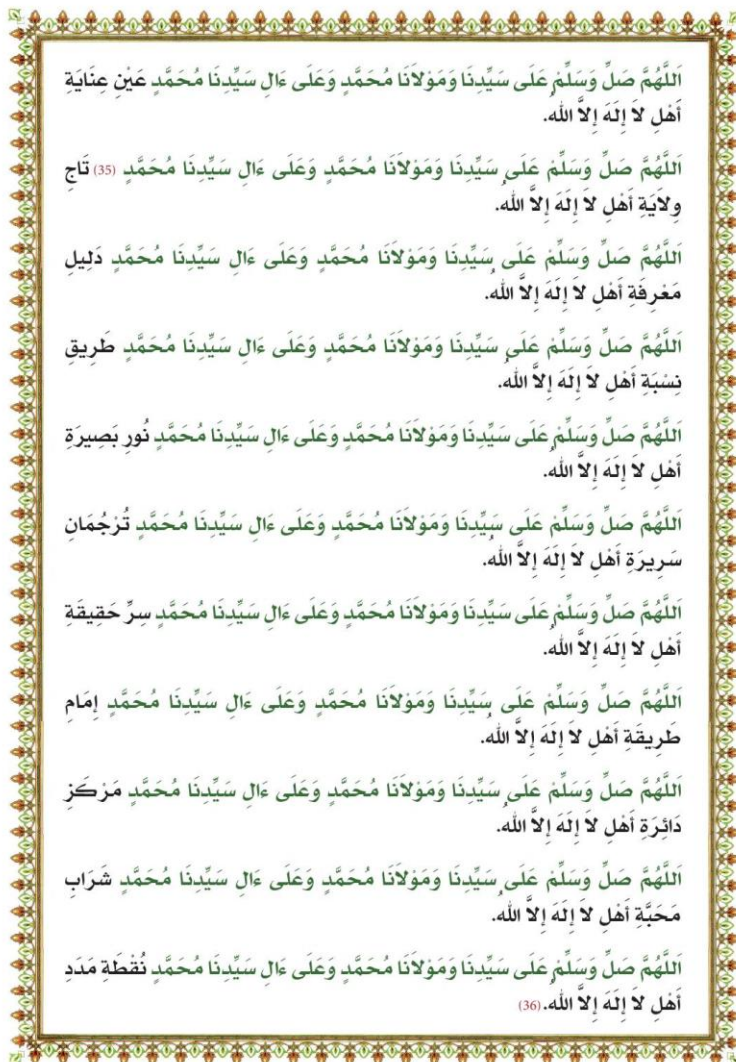 اَللَّهُمَّ صَلِّ وَسَلِّمْ عَلَى سَيِّدِنَا وَمَوْلَانَا مُحَمَّدٍ وَعَلَى ءَالِ سَيِّدِنَا مُحَمَّدٍ عَيْنِ عِنَايَةِ
أَهْلِ لاَ إِلَهَ إِلاَّ اللهُ.
اَللَّهُمَّ صَلِّ وَسَلِّمْ عَلَى سَيِّدِنَا وَمَوْلَانَا مُحَمَّدٍ وَعَلَى ءَالِ سَيِّدِنَا مُحَمَّدٍ (35) تَاجِ
وِلاَيَةِ أَهْلِ لاَ إِلَهَ إِلاَّ اللهُ.
اَللَّهُمَّ صَلِّ وَسَلِّمْ عَلَى سَيِّدِنَا وَمَوْلَانَا مُحَمَّدٍ وَعَلَى ءَالِ سَيِّدِنَا مُحَمَّدٍ دَلِيلِ
مَعْرِفَةِ أَهْلِ لاَ إِلَهَ إِلاَّ اللهُ.
اَللَّهُمَّ صَلِّ وَسَلِّمْ عَلَى سَيِّدِنَا وَمَوْلَانَا مُحَمَّدٍ وَعَلَى ءَالِ سَيِّدِنَا مُحَمَّدٍ طَرِيقِ
نِسْبَةِ أَهْلِ لاَ إِلَهَ إِلاَّ اللهُ.
اَللَّهُمَّ صَلِّ وَسَلِّمْ عَلَى سَيِّدِنَا وَمَوْلَانَا مُحَمَّدٍ وَعَلَى ءَالِ سَيِّدِنَا مُحَمَّدٍ نُورِ بَصِيرَةِ
أَهْلِ لاَ إِلَهَ إِلاَّ اللهُ.
اَللَّهُمَّ صَلِّ وَسَلِّمْ عَلَى سَيِّدِنَا وَمَوْلَانَا مُحَمَّدٍ وَعَلَى ءَالِ سَيِّدِنَا مُحَمَّدٍ تُرْجُمَانِ
سَرِيرَةِ أَهْلِ لاَ إِلَهَ إِلاَّ اللهُ.
اَللَّهُمَّ صَلِّ وَسَلِّمْ عَلَى سَيِّدِنَا وَمَوْلَانَا مُحَمَّدٍ وَعَلَى ءَالِ سَيِّدِنَا مُحَمَّدٍ سِرِّ حَقِيقَةِ
أَهْلِ لاَ إِلَهَ إِلاَّ اللهُ.
اَللَّهُمَّ صَلِّ وَسَلِّمْ عَلَى سَيِّدِنَا وَمَوْلَانَا مُحَمَّدٍ وَعَلَى ءَالِ سَيِّدِنَا مُحَمَّدٍ إِمَامِ
طَرِيقَةِ أَهْلِ لاَ إِلَهَ إِلاَّ اللهُ.
اَللَّهُمَّ صَلِّ وَسَلِّمْ عَلَى سَيِّدِنَا وَمَوْلَانَا مُحَمَّدٍ وَعَلَى ءَالِ سَيِّدِنَا مُحَمَّدٍ مَرْكَزِ
دَائِرَةِ أَهْلِ لاَ إِلَهَ إِلاَّ اللهُ.
اَللَّهُمَّ صَلِّ وَسَلِّمْ عَلَى سَيِّدِنَا وَمَوْلَانَا مُحَمَّدٍ وَعَلَى ءَالِ سَيِّدِنَا مُحَمَّدٍ شَرَابِ
مَحَبَّةِ أَهْلِ لاَ إِلَهَ إِلاَّ اللهُ.
اَللَّهُمَّ صَلِّ وَسَلِّمْ عَلَى سَيِّدِنَا وَمَوْلَانَا مُحَمَّدٍ وَعَلَى ءَالِ سَيِّدِنَا مُحَمَّدٍ نُقْطَةِ مَدَدِ
أَهْلِ لاَ إِلَهَ إِلاَّ اللهُ. (36)